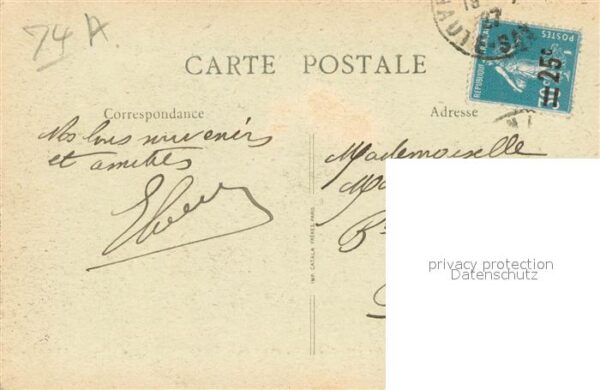 74 A
CARTE POSTALE
Correspondance
Adresse
POSTES
= 25c
Nos bons souvenirs
et amitiés
Mademoiselle
IMP. CATALA FRÈRES, PARIS
privacy protection
Datenschutz